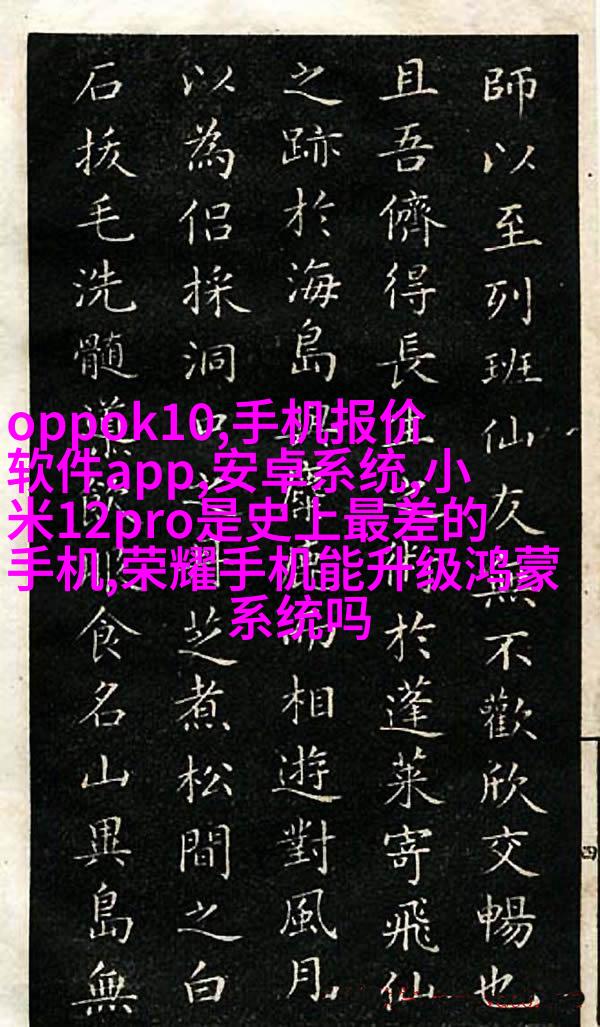 師以至列班仙友無不歡欣交暢也
且吾儕得長生於蓬萊寄飛仙
之跡於海島鹿而相遊對風月
以為侶採洞芝煮松間之白
石拔毛洗髓飲食名山異島無
oppok10,手机报价
软件app,安卓系统,小
米12pro是史上最差的
手机,荣耀手机能升级鸿蒙
系统吗